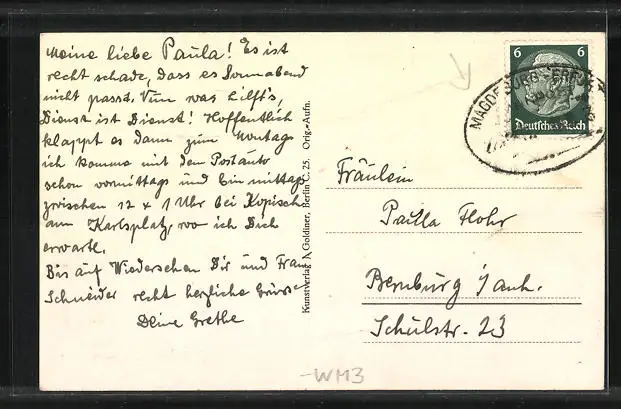 Meine liebe Paula! Es ist
recht schade, dass es Sonnabend
nicht passt. Nun was hilft's,
Dienst ist Dienst! Hoffentlich
klappt es dann zum Montag
ich komme mit dem Postauto
schon vormittags und bin mittags
zwischen 12 + 1 Uhr bei
am Karlsplatz, wo ich Dich
erwarte.
Bis auf Wiedersehen Dir und Frau
Schneider recht herzliche Grüsse
Deine Grethe
Kunstverlag J. Goldiner, Berlin C. 25. Orig.-Aufn.
6 6
Deutsches Reich
MAGDEBURG-ERFURT
Fräulein
Paula Flohr
Bernburg / Anh.
Schulstr. 23
-WM3